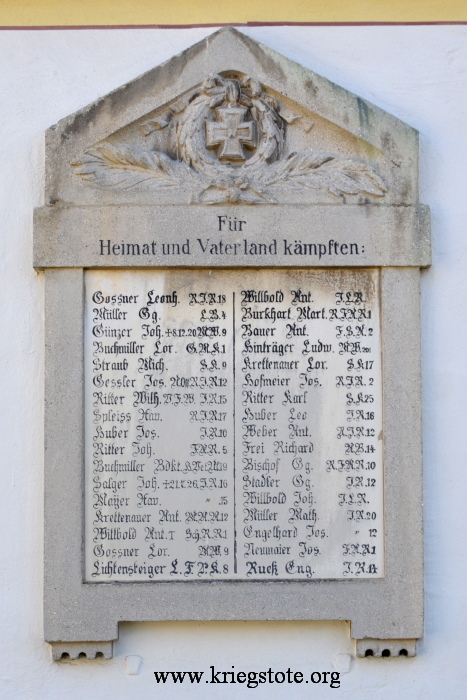 Für
Heimat und Vaterland kämpften:
Gossner Leonh. R.I.R.18
Müller Gg. L.B.4
Günzer Joh. +8.12.20 M.W.9
Buchmiller Lor. G.M.K.1
Straub Mich. S.K.9
Gessler Jos. R.I.R.12
Ritter Wilh. I.R.15
Spleiss Xav. R.I.R.17
Huber Jos. I.R.10
Ritter Joh. 5
Buchmiller Bdkt. 19
Salger Joh. I.R.16
Mayer Xav. " 15
Krettenauer Ant. 12
Willbold Ant. I
Gossner Lor. M.W.9
Lichtensteiger L. F.P.K.8
Willbold Ant. I.L.R.
Burkhart Mart. R.I.R.R.1
Bauer Ant. F.S.R.2
Hinträger Ludw.
Krettenauer Lor. S.K.17
Hofmeier Jos. R.I.R.2
Ritter Karl S.K.25
Huber Leo I.R.16
Weber Ant. R.I.R.12
Frei Richard R.B.14
Bischof Gg. R.I.R.R.10
Stadler Gg. I.R.12
Willbold Joh. I.L.R.
Müller Math. I.R.20
Engelhard Jos. " 12
Neumaier Jos.
Ruck Eng. I.R.14
www.kriegstote.org